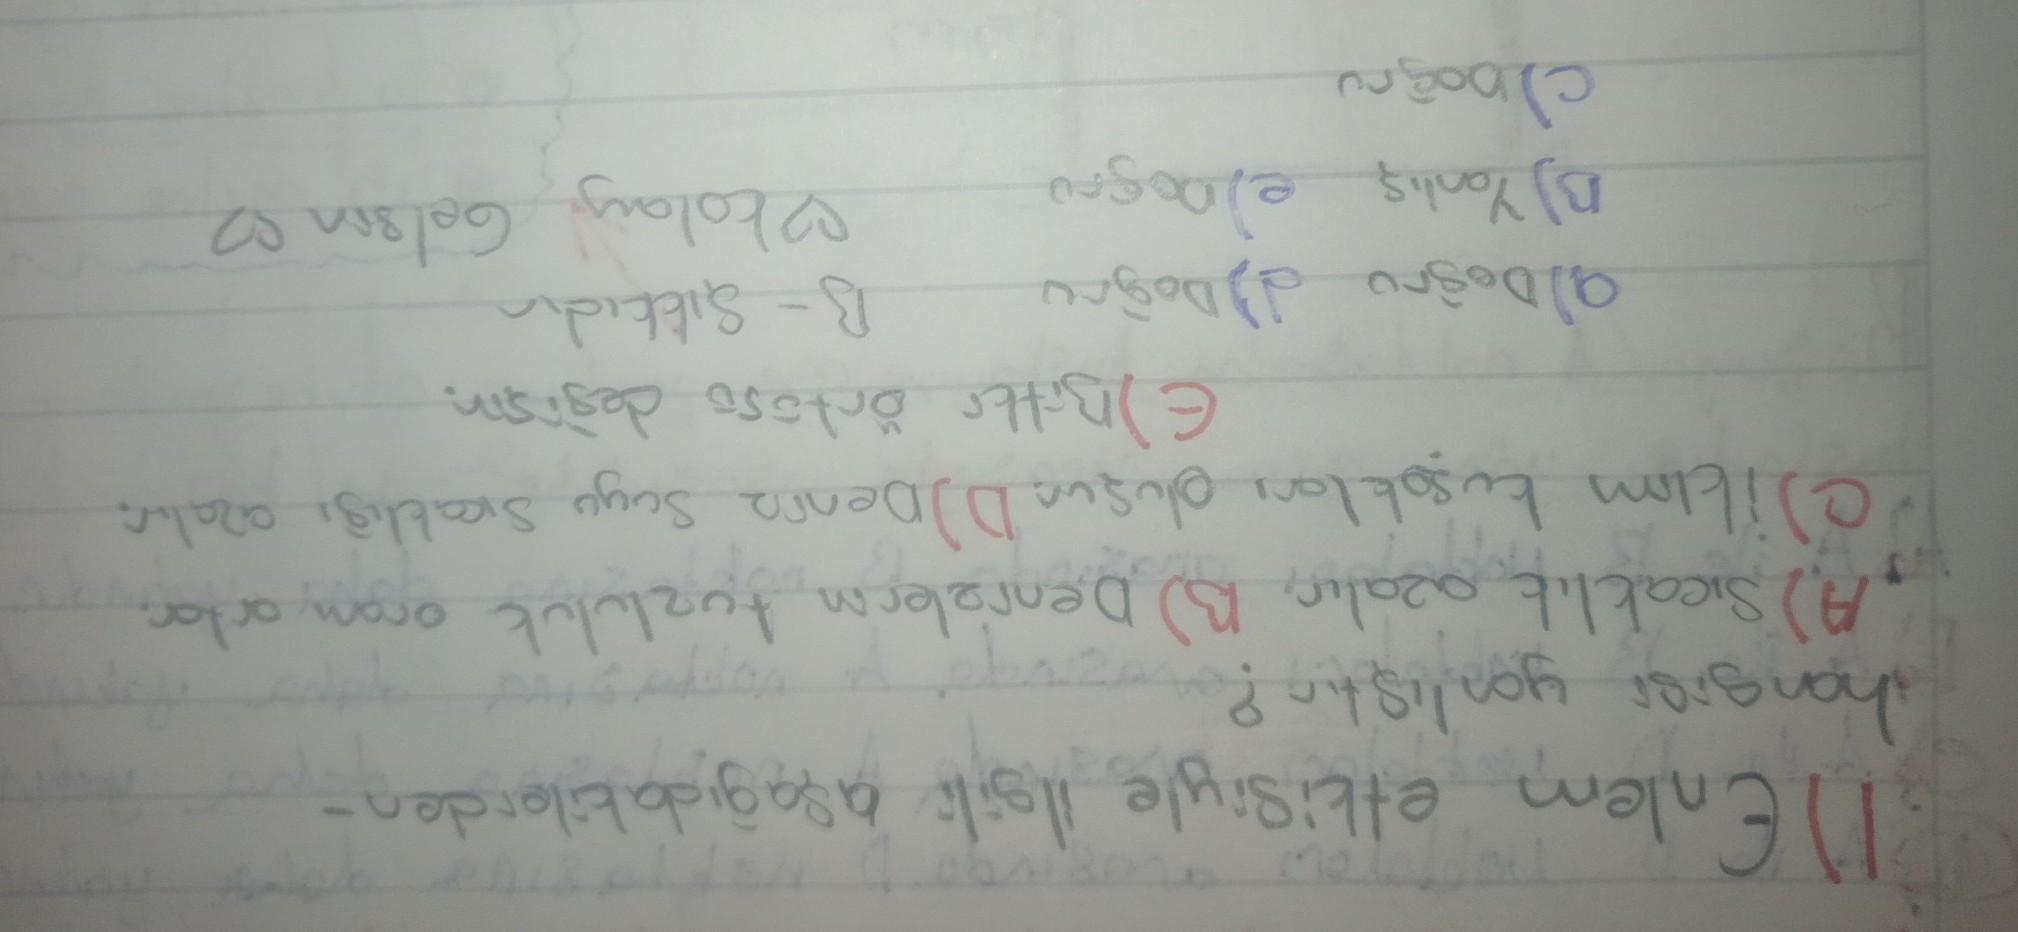 1) Enlem etkisiyle ilgili aşağıdakilerden-
hangisi yanlıştır?
A) Sıcaklık azalır. B) Denizlerin tuzluluk oranı artar.
C) İklim kuşakları oluşur. D) Deniz suyu sıcaklığı azalır.
E) Bitki örtüsü değişir.
a) Doğru d) Doğru B - Şıkkıdır
B) Yanlış e) Doğru ♡ Kolay Gelsin ♡
c) Doğru